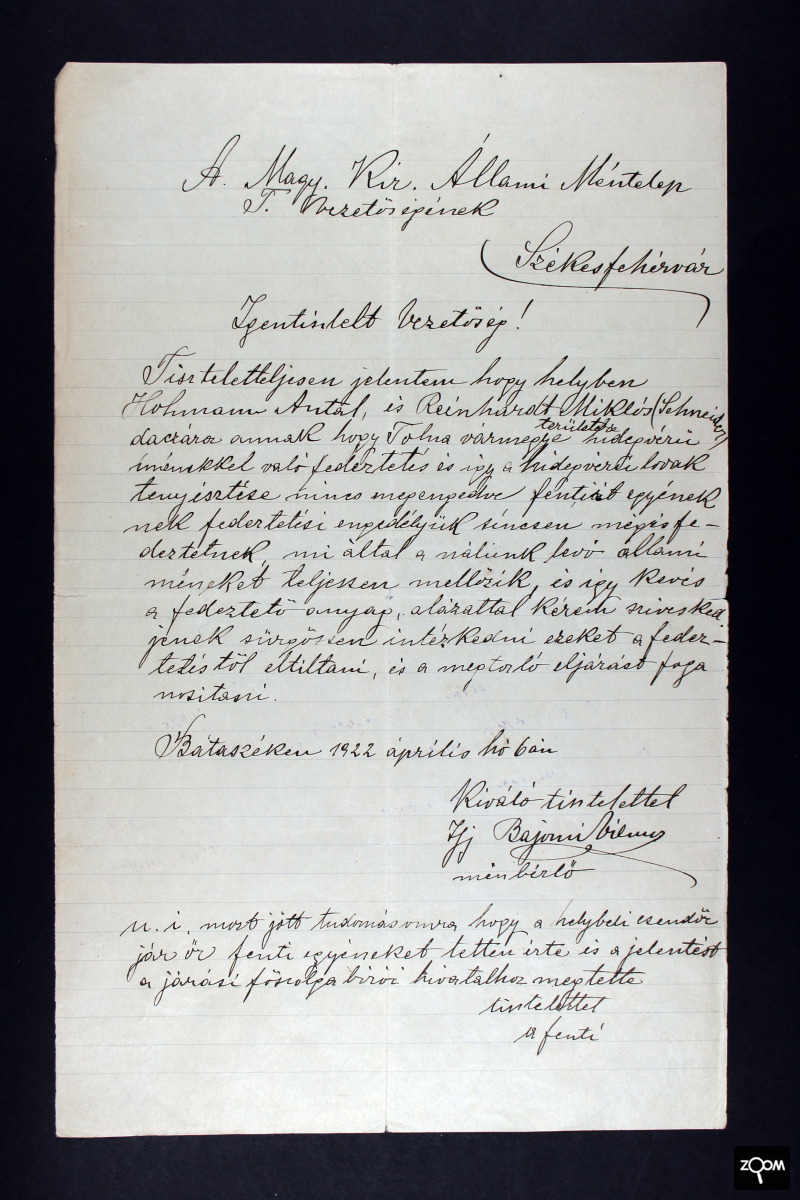 A. Magy. Kir. Állami Méntelep
T. Vezetőségének
Székesfehérvár
Igentisztelt Vezetőség!
Tiszteletteljesen jelentem hogy helyben
Hohmann Antal, és Reinhardt Miklós (Schneider)
daczára annak hogy Tolna vármegye területén hidegvérű
ménekkel való fedeztetés és igy a hidegvérű lovak
tenyésztése nincs megengedve fentirt egyének
nek fedeztetési engedélyük sincsen, mégis fe-
deztetnek, mi által a nálunk levő állami
méneket teljessen mellőzik, és igy kevés
a fedeztető anyag, alázattal kérem sziveskied
jenek sürgőssen intézkedni ezeket a fedez-
tetéstől eltiltani, és a megtorló eljárást foga
nositani.
Bátaszéken 1922 április hó 6án
Kiváló tisztelettel
Ifj Bajomi Vilmos
ménbérlő
u. i. most jött tudomásomra hogy a helybeli csendőr
jár őr fenti egyéneket tetten érte és a jelentést
a járási főszolga birói hivatalhoz megtette
tisztelettel
a fenti
ZOOM